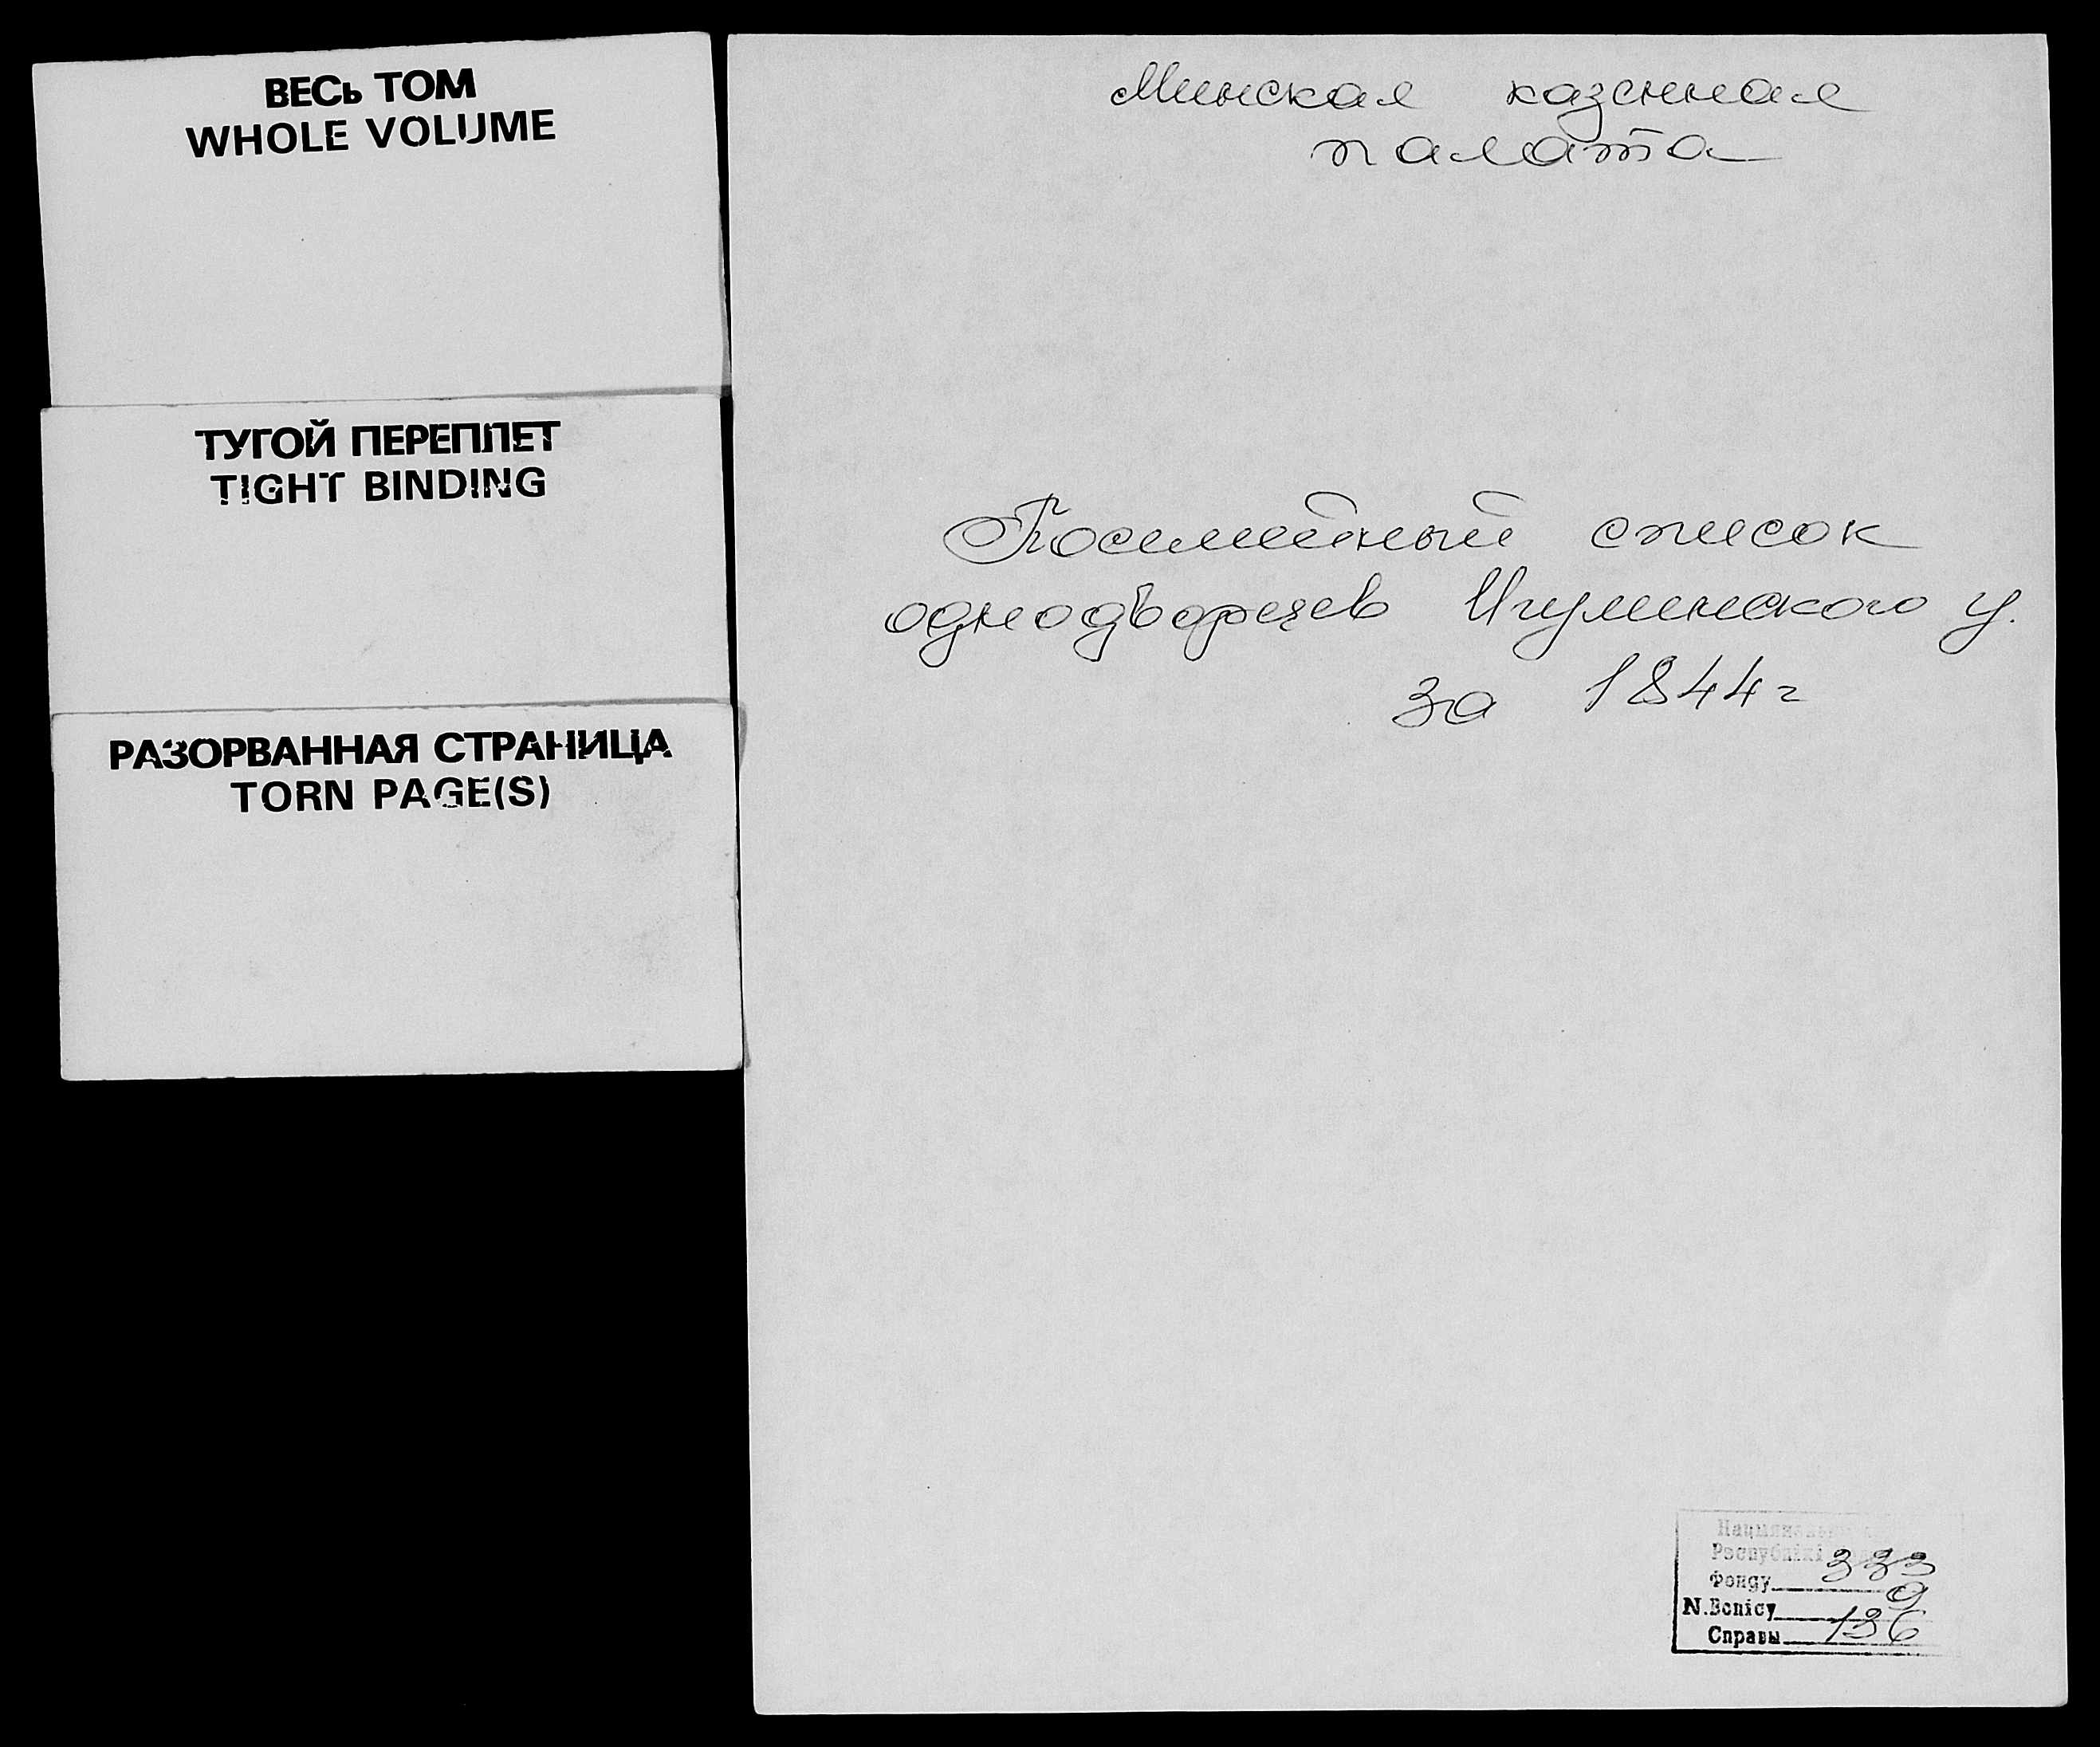 ВЕСЬ ТОМ
WHOLE VOLUME
ТУГОЙ ПЕРЕПЛЕТ
TIGHT BINDING
РАЗОРВАННАЯ СТРАНИЦА
TORN PAGE(S)
Минская казенная
палата
Посемейный список
однодворцев Игуменского у.
за 1844 г
Рэспублікі
Фонду 333
N. Вопісу 9
Справы 136